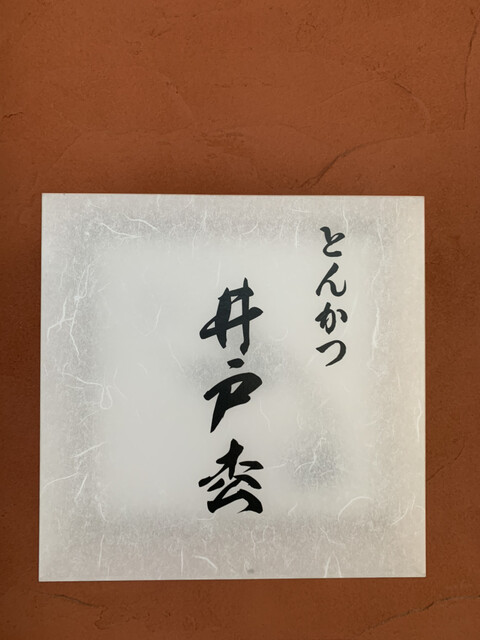 とんかつ
井戸枩